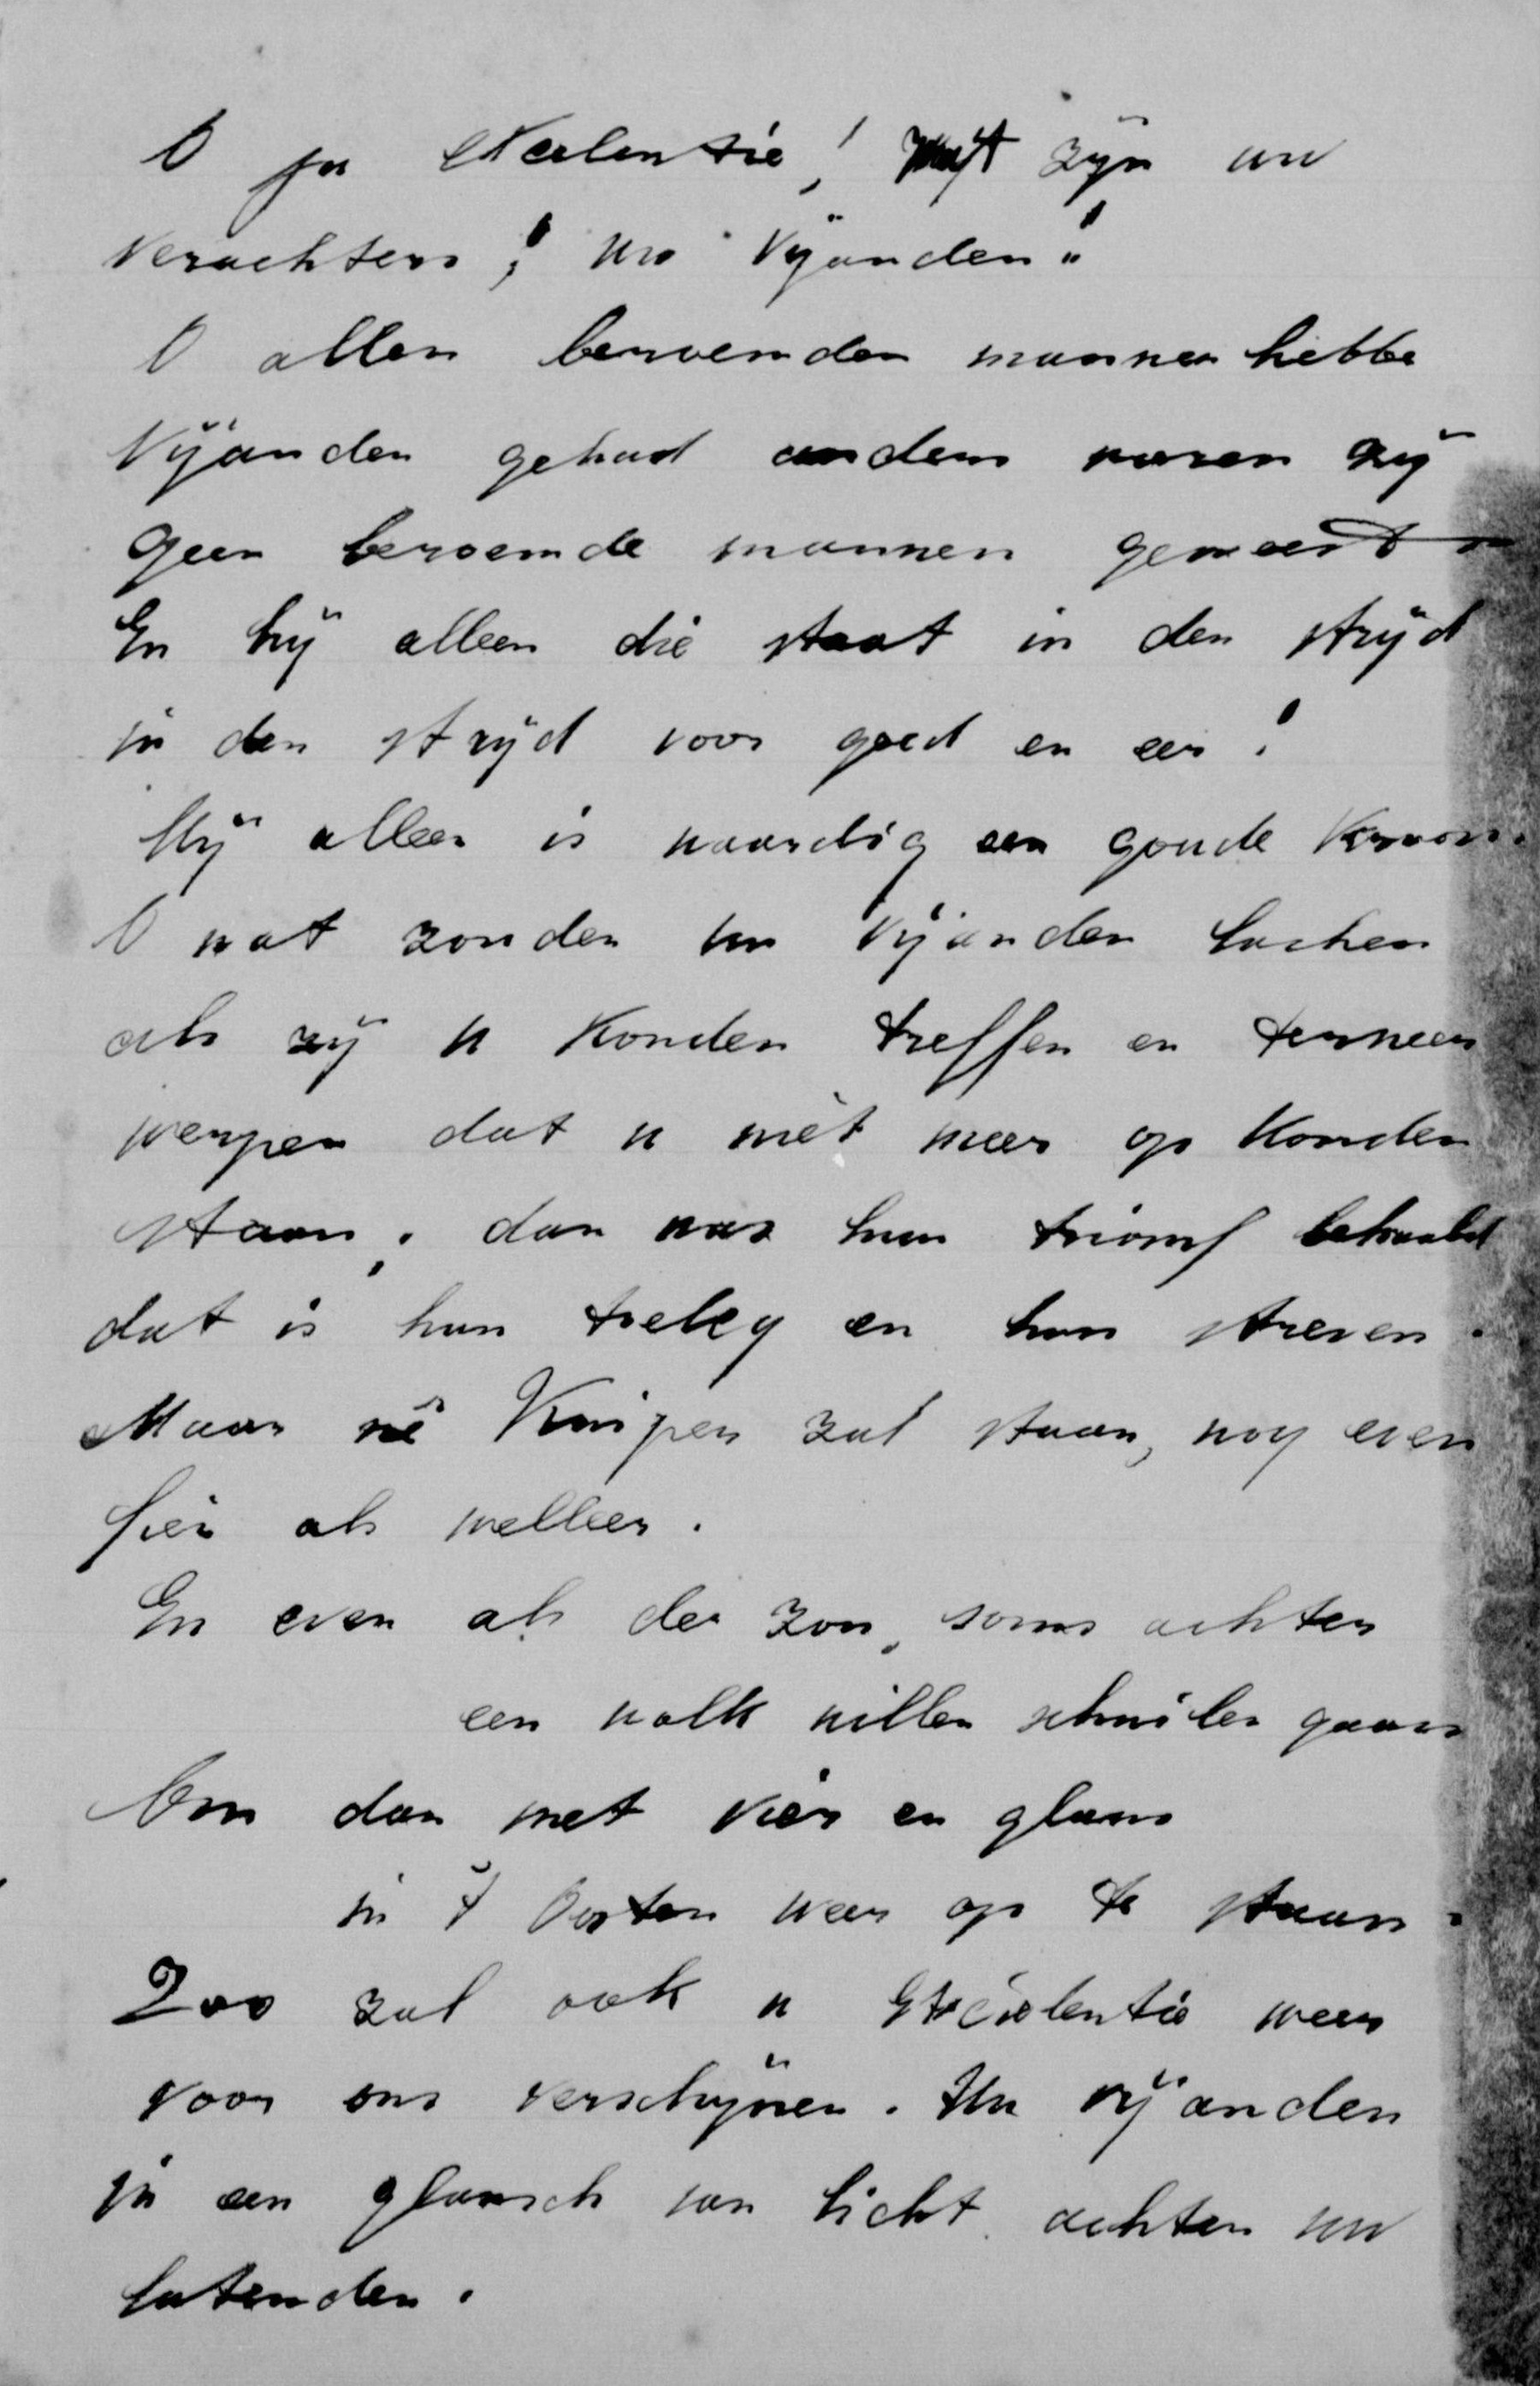 O ja Exelentie! zijn uw
verachters! uw Vijanden!
O allen beroemden mannen hebbe
Vijanden gehad anders waren zij
geen beroemde mannen geweest
En hij alleen die staat in den strijd
in den strijd voor goed en eer!
Hij alleen is waardig een goude Kroon.
O wat zouden uw Vijanden lachen
als zij u Konden treffen en terneer
werpen dat u niet meer op Konden
staan, dan was hun triomf behaald
dat is hun en hun streven.
Maar né Kuiper zal staan, nog even
fier als welleer.
En even als de zon, soms achter
een wolk willen schuilen gaan
Om dan met vier en glans
in 't Oosten weer op te staan.
Zoo zal ook u Excelentie weer
voor ons verschijnen. Uw vijanden
in een glansch van licht achter uw
latenden.